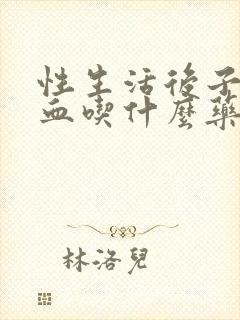 性生活後子
血喫什麼藥
林洛兒